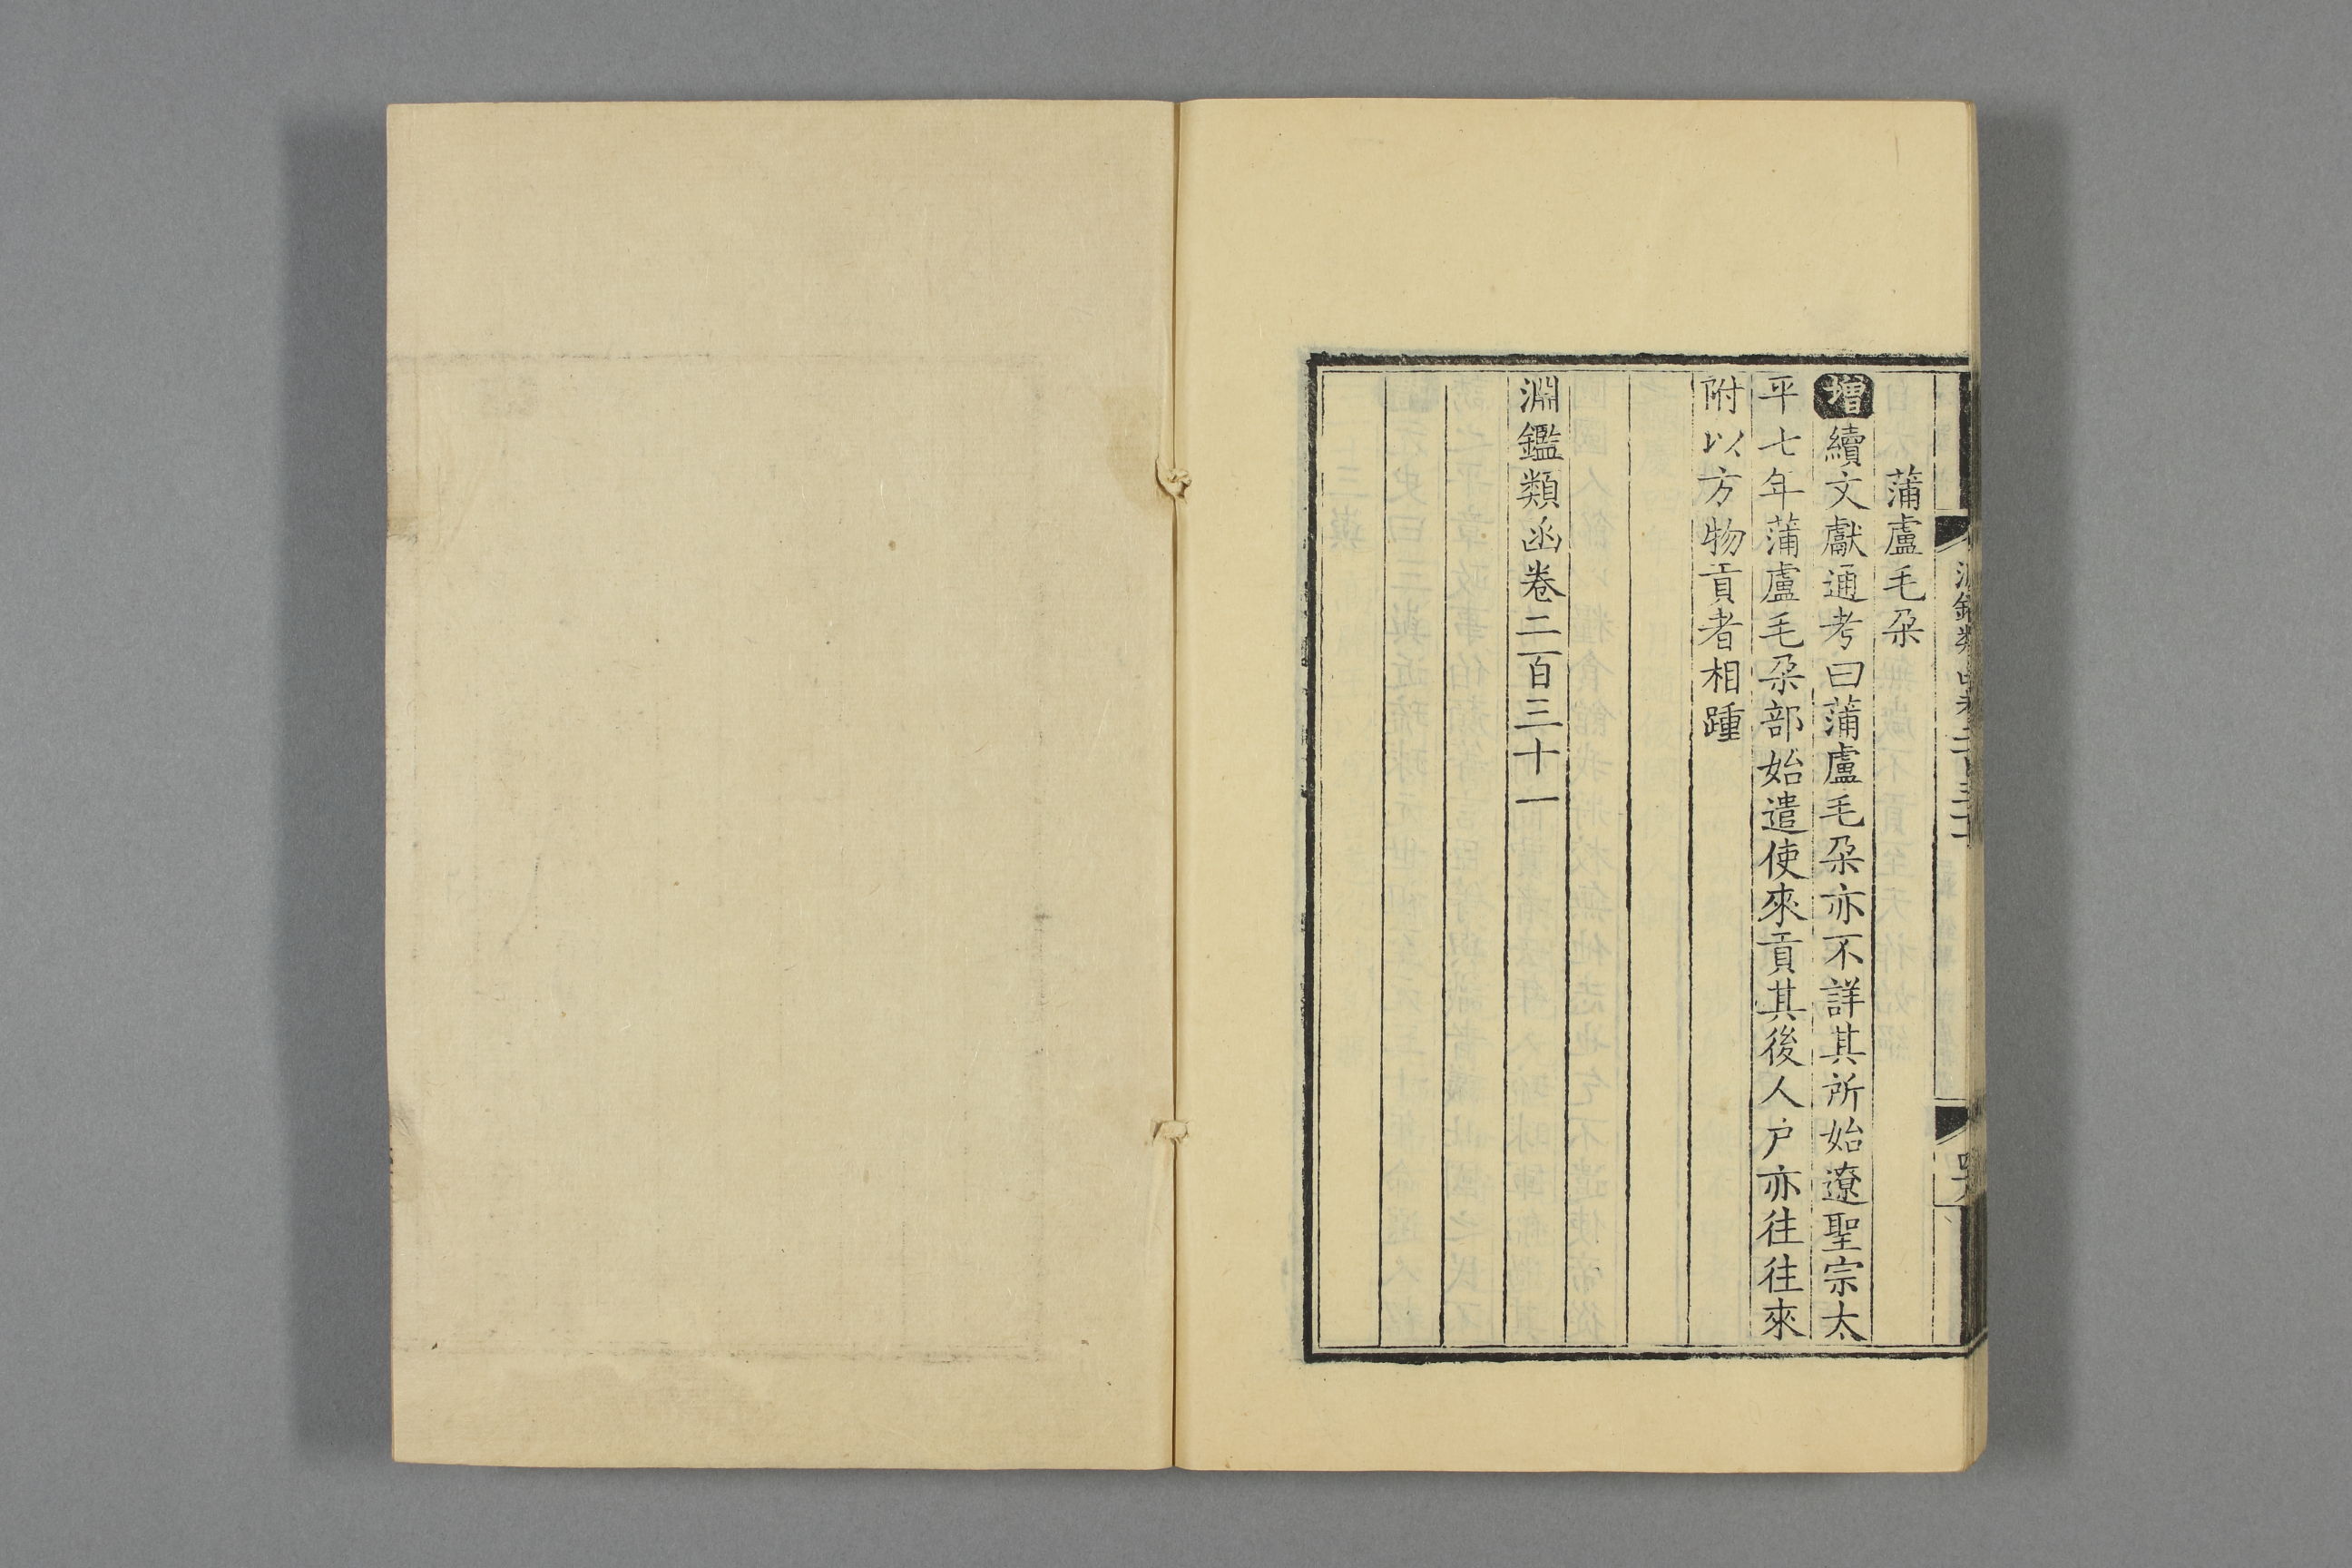 蒲盧毛朶
增續文獻通考曰蒲盧毛朶亦不詳其所始遼聖宗太
平七年蒲盧毛朶部始遣使來貢其後人戸亦往往來
附以方物貢者相踵
淵鑑類函卷二百三十一